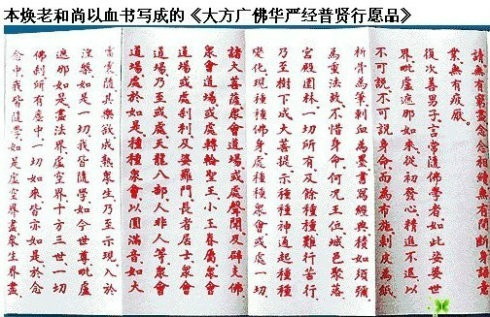 本焕老和尚以血书写成的《大方广佛华严经普贤行愿品》
無有窮盡念念相續無有間斷身語意
業無有疲厭
復次善男子言常隨佛學者如此娑婆世
界毗盧遮那如來從初發心精進不退以
不可說不可說身命而為布施剝皮為紙
析骨為筆刺血為墨書寫經典積如須彌
為重法故不惜身命何況王位城邑聚落
宮殿園林一切所有及餘種種難行苦行
乃至樹下成大菩提示種種神通起種種
變化現種種佛身處種種眾會或處一切
諸大菩薩眾會道場或處聲聞及辟支佛
眾會道場或處轉輪聖王小王眷屬眾會
道場或處剎利及婆羅門長者居士眾會
道場乃至或處天龍八部人非人等眾會
道場處於如是種種眾會以圓滿音如大
雷震隨其樂欲成熟眾生乃至示現入於
涅槃如是一切我皆隨學如今世尊毗盧
遮那如是盡法界虛空界十方三世一切
佛剎所有塵中一切如來皆亦如是於念
念中我皆隨學如是虛空界盡眾生界盡